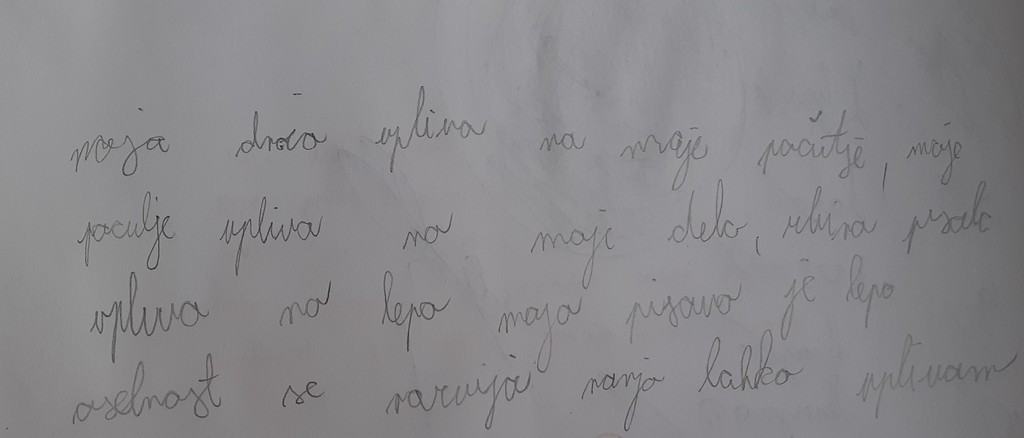 moja drža vpliva na moje počutje, moje
počutje vpliva na moje delo, izbira pisala
vpliva na lepo moja pisava je lepa
osebnost se razvija nanjo lahko vplivam